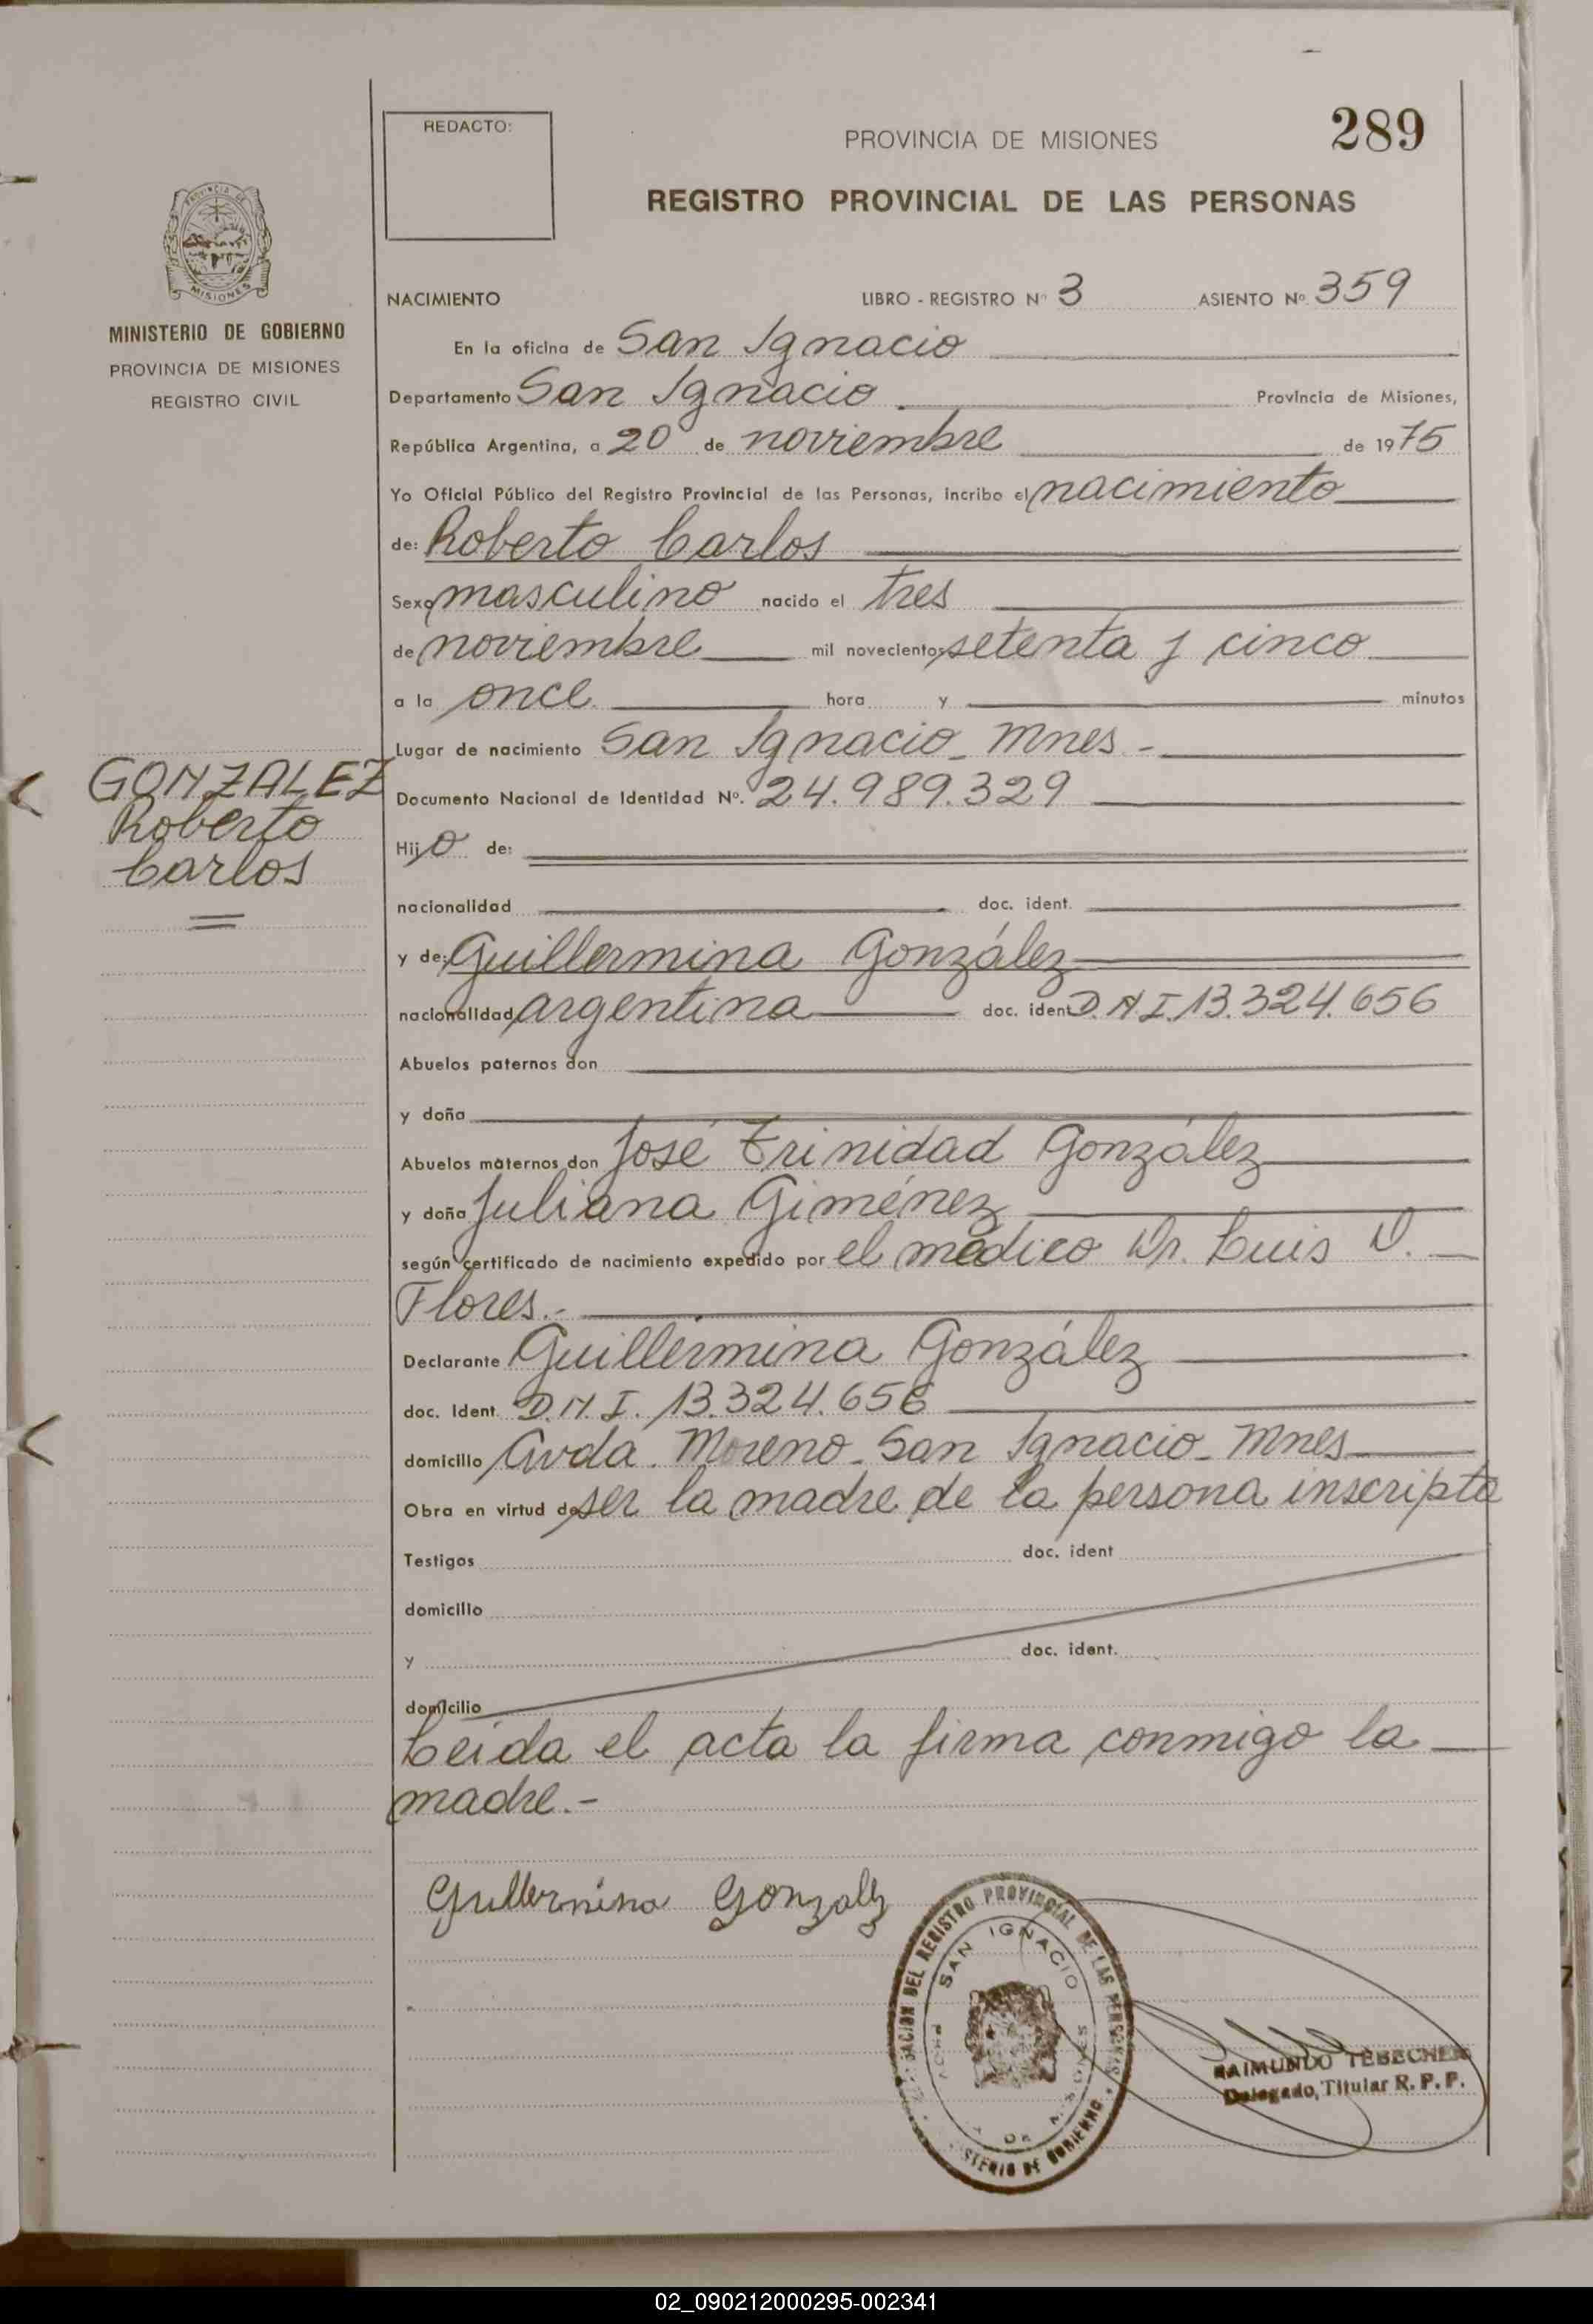 REDACTO:
PROVINCIA DE MISIONES
289
REGISTRO PROVINCIAL DE LAS PERSONAS
PROVINCIA DE
MISIONES
MINISTERIO DE GOBIERNO
PROVINCIA DE MISIONES
REGISTRO CIVIL
NACIMIENTO LIBRO - REGISTRO Nº 3 ASIENTO Nº 359
En la oficina de San Ignacio
Departamento San Ignacio Provincia de Misiones,
República Argentina, a 20 de noviembre de 1975
Yo Oficial Público del Registro Provincial de las Personas, incribo el nacimiento
de: Roberto Carlos
Sexo masculino nacido el tres
de noviembre mil novecientos setenta y cinco
a la once hora y minutos
Lugar de nacimiento San Ignacio - Mnes -
GONZALEZ
Roberto
Carlos
Documento Nacional de Identidad Nº. 24.989.329
Hijo de:
nacionalidad doc. ident.
y de: Guillermina González
nacionalidad argentina doc. ident D.N.I. 13.324.656
Abuelos paternos don
y doña
Abuelos maternos don José Trinidad González
y doña Juliana Giménez
según certificado de nacimiento expedido por el médico Dr. Luis D.
Flores.-
Declarante Guillermina González
doc. Ident. D.N.I. 13.324.656
domicilio Avda. Moreno - San Ignacio - Mnes
Obra en virtud de ser la madre de la persona inscripta
Testigos doc. ident
domicilio
y doc. ident.
domicilio
Leída el acta la firma conmigo la
madre.-
Gullernina Gonzalz
REGISTRO PROVINCIAL DE LAS PERSONAS
SAN IGNACIO
DE GOBIERNO
RAIMUNDO
Delegado Titular R. P. P.
02_090212000295-002341